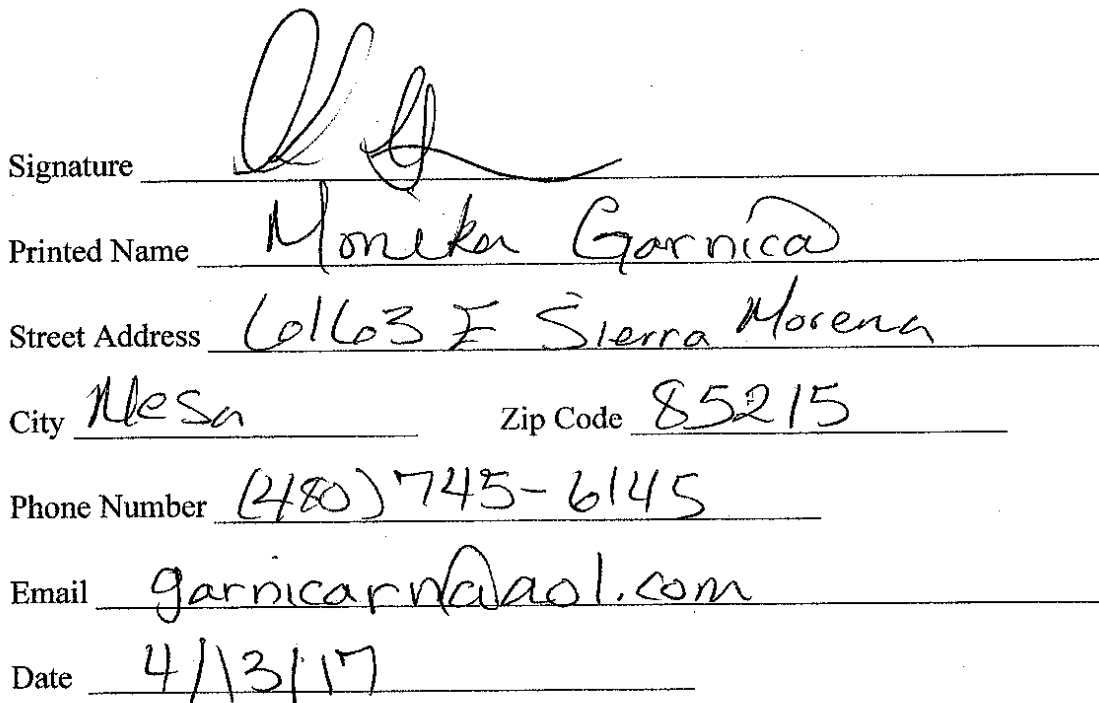 Signature
Printed Name Monika Garnica
Street Address 6163 E Sierra Morena
City Mesa Zip Code 85215
Phone Number (480) 745-6145
Email garnicarn@aol.com
Date 4/13/17